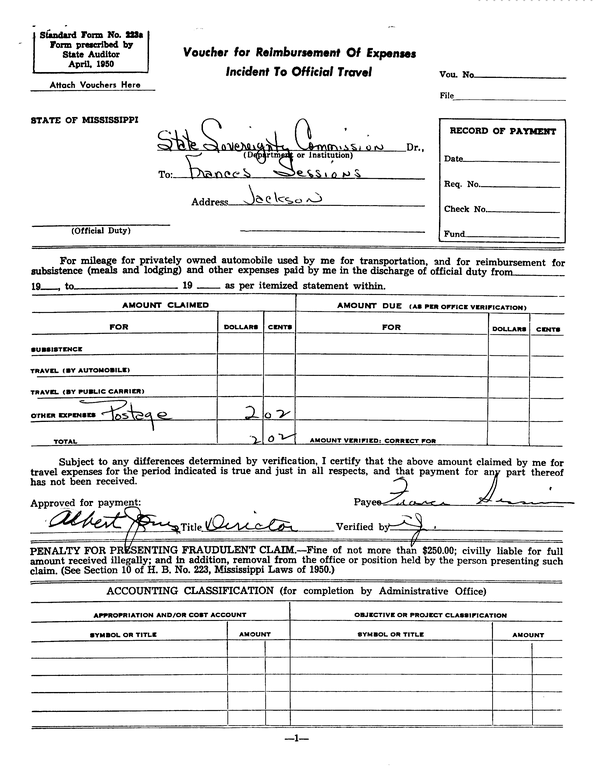 Standard Form No. 223a
Form prescribed by
State Auditor
April, 1950
Attach Vouchers Here
Voucher for Reimbursement Of Expenses
Incident To Official Travel
Vou. No.
File
STATE OF MISSISSIPPI
State Sovereignty Commission Dr.,
(Department or Institution)
To: Frances Sessions
Address Jackson
(Official Duty)
RECORD OF PAYMENT
Date
Req. No.
Check No.
Fund
For mileage for privately owned automobile used by me for transportation, and for reimbursement for
subsistence (meals and lodging) and other expenses paid by me in the discharge of official duty from
19 , to 19 as per itemized statement within.
AMOUNT CLAIMED AMOUNT DUE (AS PER OFFICE VERIFICATION)
FOR DOLLARS CENTS FOR DOLLARS CENTS
SUBSISTENCE
TRAVEL (BY AUTOMOBILE)
TRAVEL (BY PUBLIC CARRIER)
OTHER EXPENSES Postage 2 02
TOTAL 2 02 AMOUNT VERIFIED: CORRECT FOR
Subject to any differences determined by verification, I certify that the above amount claimed by me for
travel expenses for the period indicated is true and just in all respects, and that payment for any part thereof
has not been received.
Approved for payment: Payee Frances Sessions
Albert Jones Title Director Verified by
PENALTY FOR PRESENTING FRAUDULENT CLAIM.—Fine of not more than $250.00; civilly liable for full
amount received illegally; and in addition, removal from the office or position held by the person presenting such
claim. (See Section 10 of H. B. No. 223, Mississippi Laws of 1950.)
ACCOUNTING CLASSIFICATION (for completion by Administrative Office)
APPROPRIATION AND/OR COST ACCOUNT OBJECTIVE OR PROJECT CLASSIFICATION
SYMBOL OR TITLE AMOUNT SYMBOL OR TITLE AMOUNT
—1—